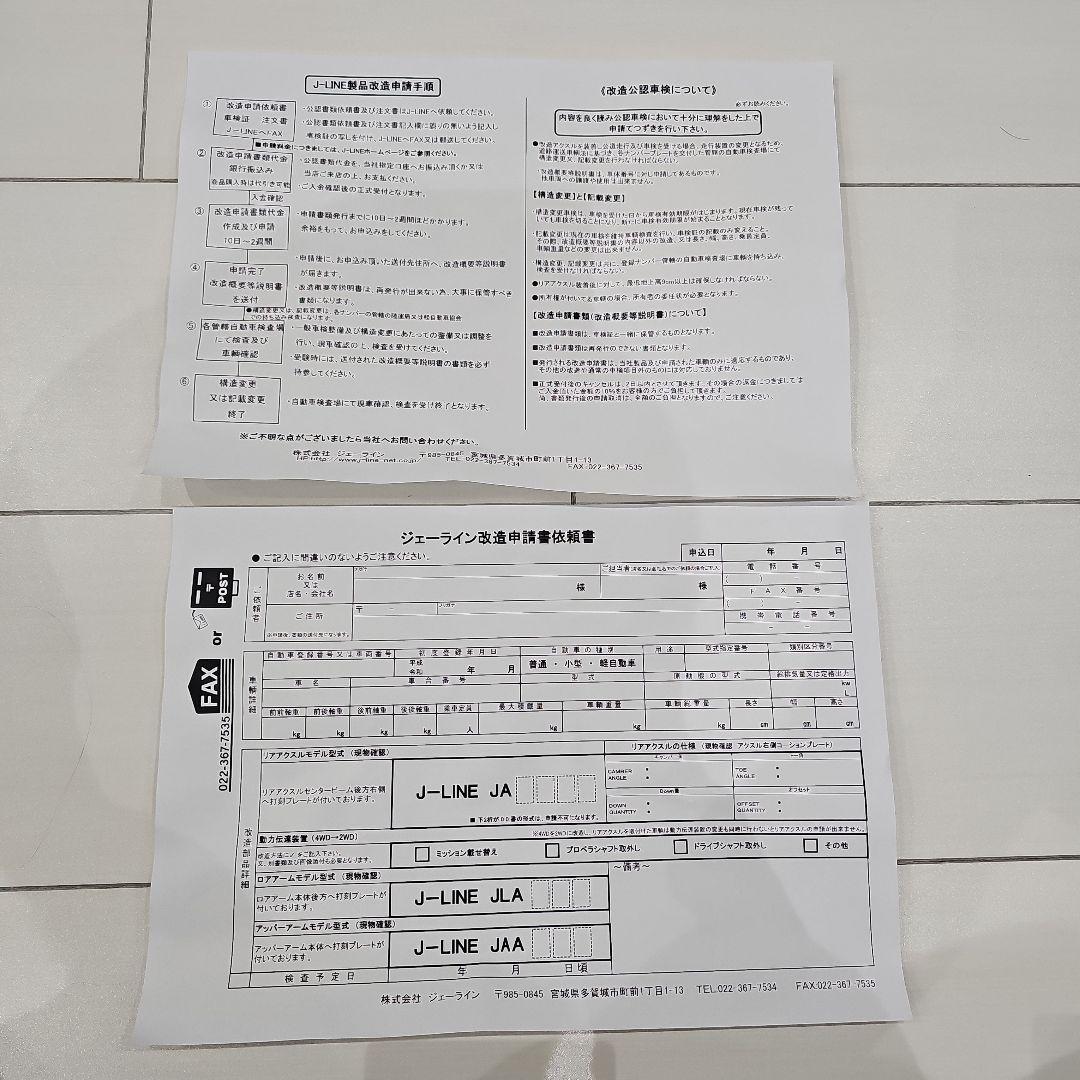 J-LINE製品改造申請手順
① 改造申請依頼書
車検証 注文書
J-LINEへFAX
・公認書類依頼書及び注文書はJ-LINEへ依頼してください。
・公認書類依頼書及び注文書記入欄に誤りの無いよう記入し
車検証の写しを付け、J-LINEへFAX又は郵送してください。
■申請料金につきましては、J-LINEホームページをご参照ください。
② 改造申請書類代金
銀行振込み
商品購入時は代引き可能
・公認書類代金を、当社指定口座へお振込み頂くか又は
当店ご来店の上、お支払ください。
・ご入金確認後の正式受付となります。
入金確認
③ 改造申請書類代金
作成及び申請
10日～2週間
・申請書類発行までに10日～2週間ほどかかります。
余裕をもって、お申込みをしてください。
④ 申請完了
改造概要等説明書
を送付
・申請後に、お申込み頂いた送付先住所へ、改造概要等説明書
が届きます。
・改造概要等説明書は、再発行が出来ない為、大事に保管すべき
書類になります。
●構造変更又は、記載変更は、各ナンバーの管轄の陸運局又は軽自動車協会
での持ち込み検査になります。
⑤ 各管轄自動車検査場
にて検査及び
車輌確認
・一般車検整備及び構造変更にあたっての整備又は調整を
行い、現車確認の上、検査を受けてください。
・受験時には、送付された改造概要等説明書の書類を必ず
持参してください。
⑥ 構造変更
又は記載変更
終了
・自動車検査場にて現車確認、検査を受け終了となります。
※ご不明な点がございましたら当社へお問い合わせください。
株式会社 ジェーライン 〒985-0845 宮城県多賀城市町前1丁目1-13
HP:http://www.j-line.net.co.jp/ TEL.022-367-7534 FAX:022-367-7535
《改造公認車検について》
必ずお読みください。
内容を良く読み公認車検において十分に理解をした上で
申請てつずきを行い下さい。
●改造アクスルを装着し公道走行及び車検を受ける場合、走行装置の変更となるため、
道路運送車輌法に基づき、各ナンバープレートを交付した管轄の自動車検査場にて
構造変更又、記載変更を行わなければならない。
・改造概要等説明書は、車体番号に対し申請してあるものです。
他車輌への譲渡や使用は出来ません。
【構造変更】と【記載変更】
・構造変更車検は、車検を受けた日から車検有効期限がはじまります。現在車検が残って
いても車検を切ることになり、新たに車検有効期限が始まることとなります。
・記載変更は現在の車検を維持車輌検査を行い、車検証の記載のみ変えること。
その際、改造概要等説明書の内容以外の改造、又は長さ、幅、高さ、乗員定員、
車輌重量などの変更は出来ません。
・構造変更、記録変更は共に、登録ナンバー管轄の自動車検査場に車輌を持ち込み、
検査を受けなければならない。
●リアアクスル装着後に対して、最低地上高9cm以上は確保しなければならない。
●所有権が付いてる車輌の場合、所有者の委任状が必要となります。
【改造申請書類(改造概要等説明書)について】
■改造申請書類は、車検証と一緒に保管するものとなります。
■改造申請書類は再発行のできない書類となります。
■発行される改造申請書は、当社製品及び申請された車輌のみに適応するものであり、
その他の改造や通常の車検項目外のものには対応しておりません。
■正式受付後のキャンセルは、2日以内とさせて頂きます。その場合の返金につきましては
ご入金頂いた金額の10%をお客様の方でご負担して頂きます。
尚、書類発行後の申請取消は、全額のご負担となりますので、ご注意ください。
ジェーライン改造申請書依頼書
●ご記入に間違いのないようご注意ください。
申込日 年 月 日
POST
〒
or
FAX
022-367-7535
ご依頼者
お名前
又は
店名・会社名
フリガナ
様
ご担当者
様
電話番号
( ) -
FAX番号
( ) -
携帯電話番号
- -
ご住所
〒
フリガナ
※申請後、書類の送付先になります。
車輌詳細
自動車登録番号又は車両番号
初度登録年月日
平成
令和
年 月
自動車の種別
普通・小型・軽自動車
用途
型式指定番号
類別区分番号
車名
車台番号
型式
原動機の型式
総排気量又は定格出力
kw
L
前前軸重 前後軸重 後前軸重 後後軸重 乗車定員 最大積載量 車輌重量 車輌総重量 長さ 幅 高さ
kg kg kg kg 人 kg kg kg cm cm cm
改造部品詳細
リアアクスルモデル型式(現物確認)
リアアクスルセンタービーム後方右側
へ打刻プレートが付いております。
J-LINE JA
■下2桁がDD書の形式は、申請不可になります。
リアアクスルの仕様(現物確認 アクスル右側コーションプレート)
キャンバー角
トー角
CAMBER
ANGLE :
TOE
ANGLE :
Down量
オフセット
DOWN
QUANTITY :
OFFSET
QUANTITY :
動力伝達装置(4WD→2WD)
※4WDを2WDに改造し、リアアクスルを取付けた車輌は動力伝達装置の変更も同時に行わないとリアアクスルの申請が出来ません。
改造方法に✓をご記入下さい。
又、別書類及び画像添付も必要となります。
□ ミッション載せ替え □ プロペラシャフト取外し □ ドライブシャフト取外し □ その他
ロアアームモデル型式(現物確認)
ロアアーム本体後方へ打刻プレートが
付いております。
J-LINE JLA
～備考～
アッパーアームモデル型式(現物確認)
アッパーアーム本体へ打刻プレートが
付いております。
J-LINE JAA
検査予定日 年 月 日頃
株式会社 ジェーライン 〒985-0845 宮城県多賀城市町前1丁目1-13 TEL.022-367-7534 FAX:022-367-7535